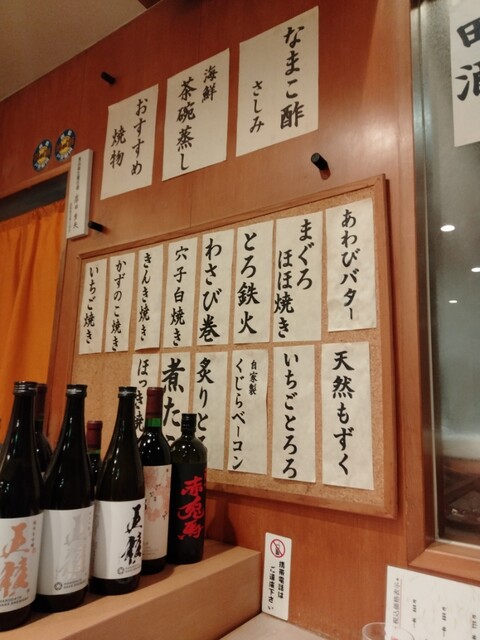 なまこ酢
さしみ
海鮮
茶碗蒸し
おすすめ
焼物
あわびバター
まぐろ
ほほ焼き
とろ鉄火
わさび巻
穴子白焼き
きんき焼き
かずのこ焼き
いちご焼き
天然もずく
いちごとろろ
自家製
くじらベーコン
炙りとろ
煮た
ほっき焼
赤兎馬
携帯電話は
ご遠慮下さい